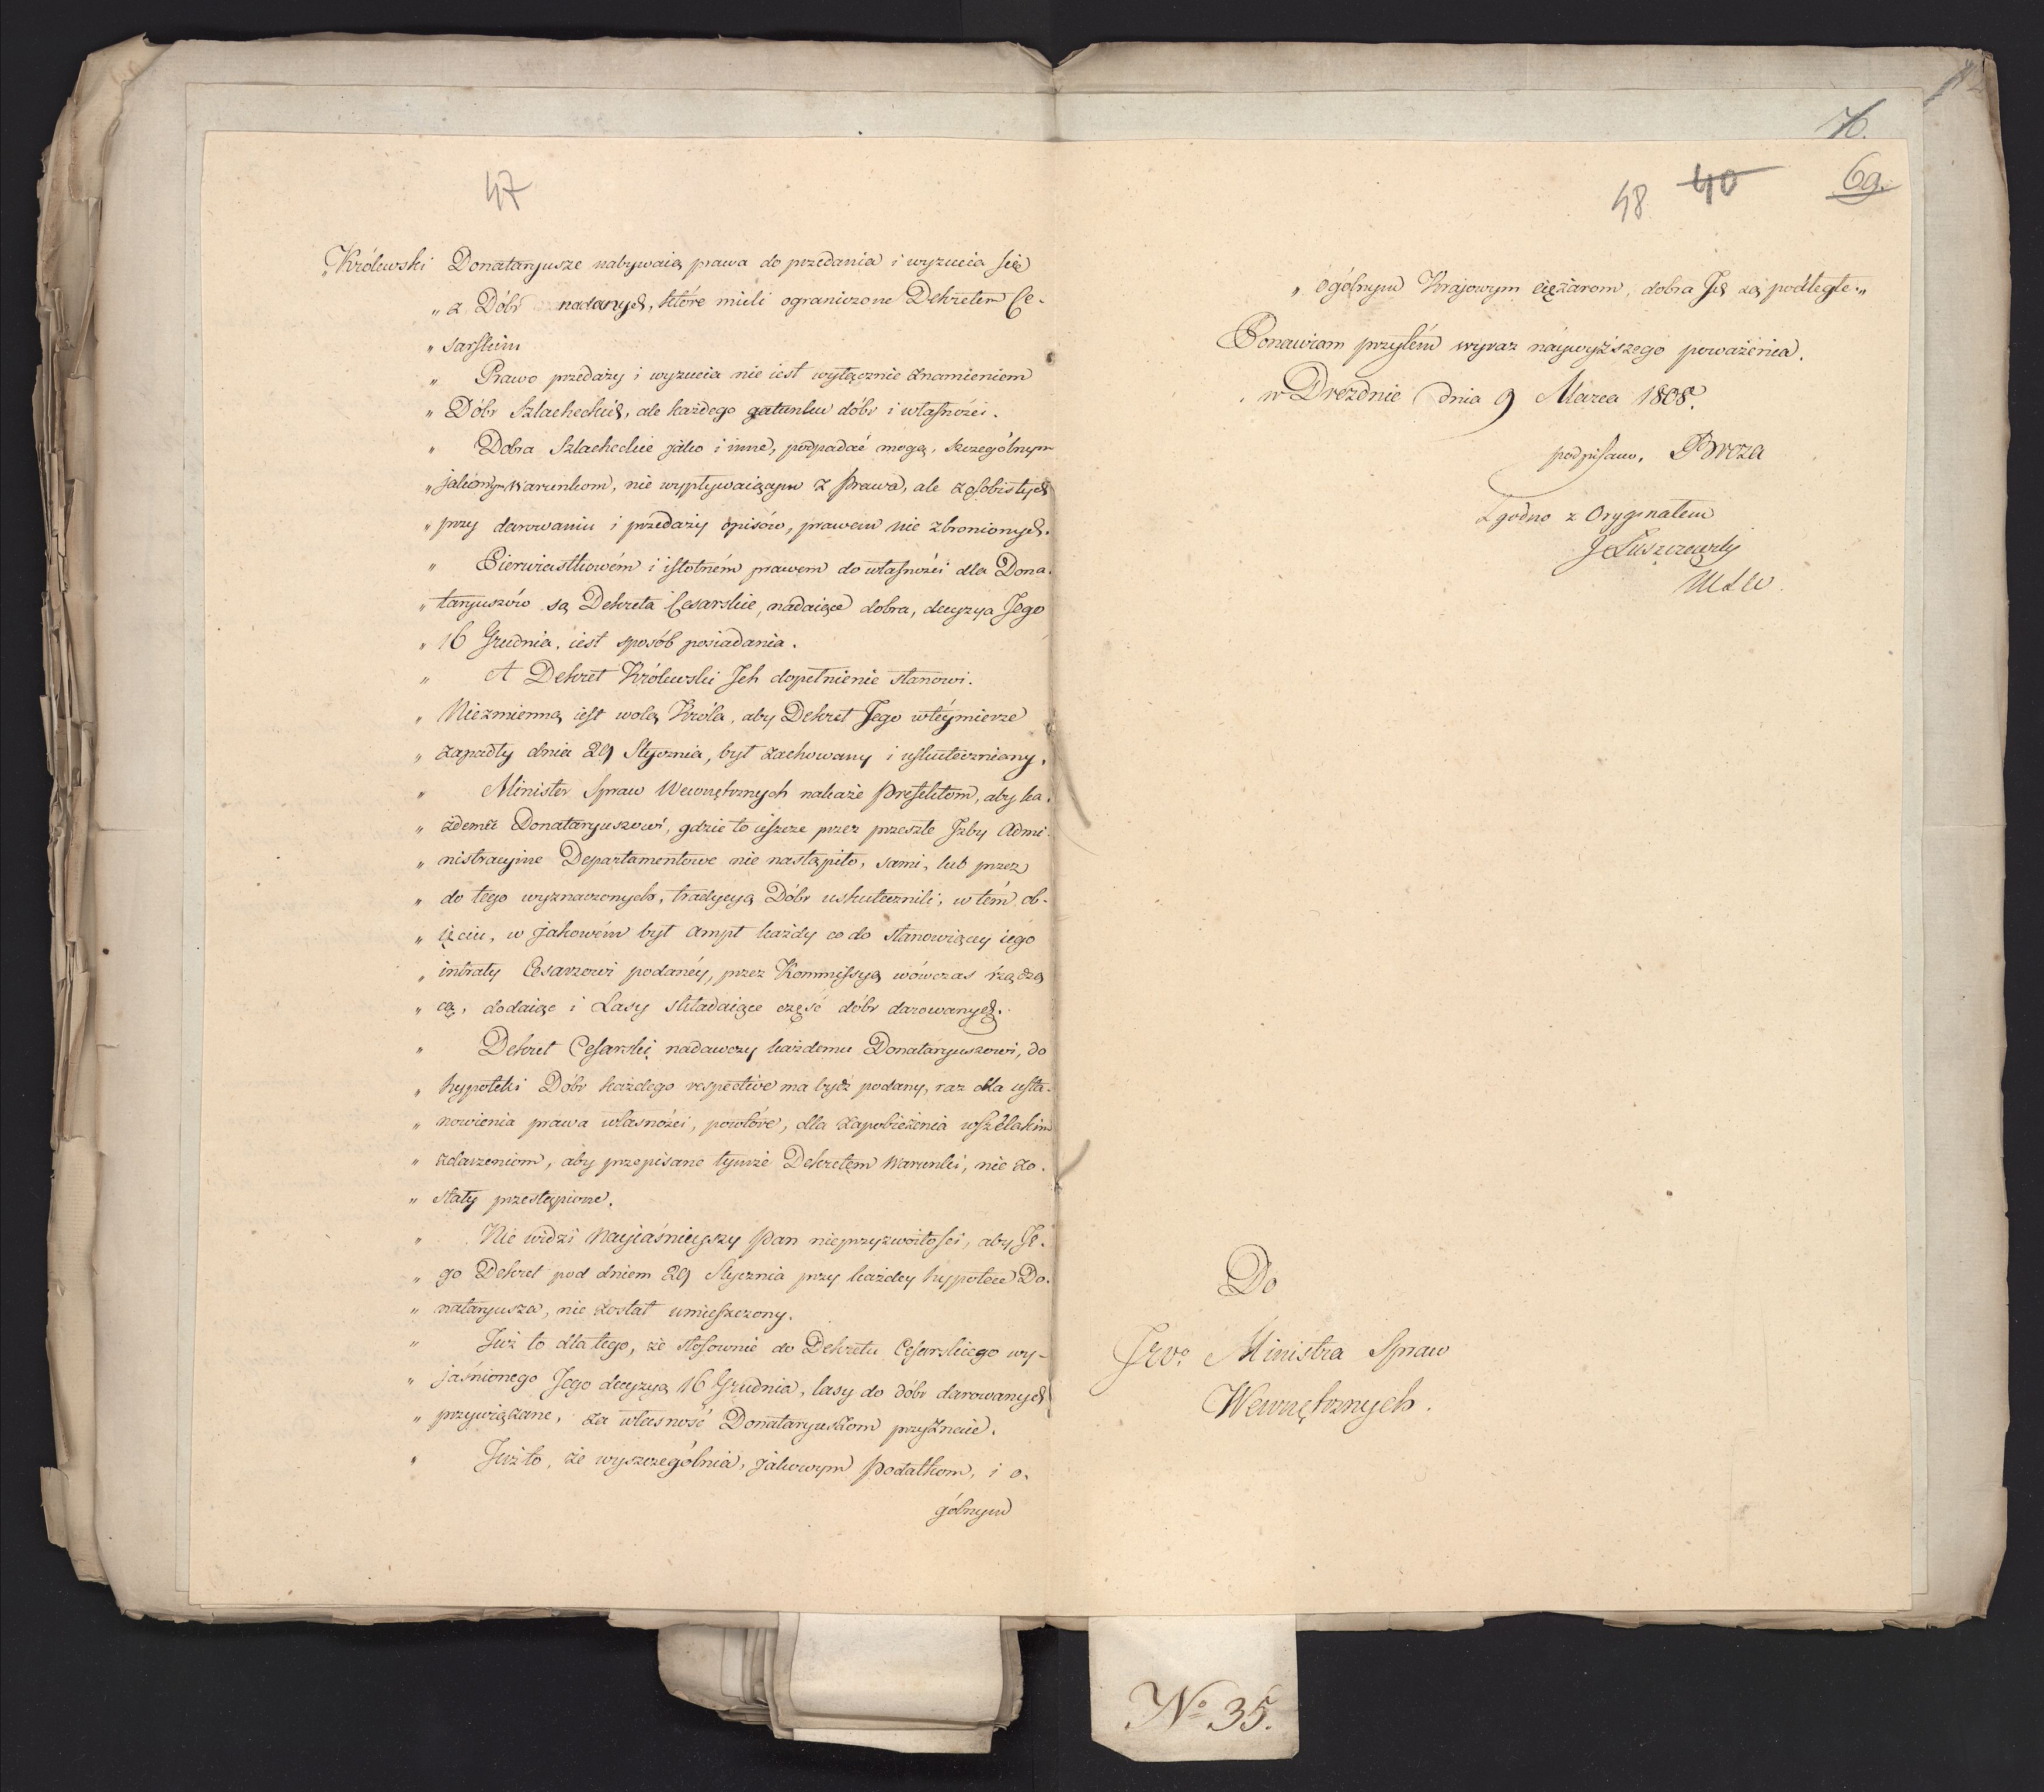 47
„Królewski Donataryusze nabywaią prawa do przedania i wyzucia się
„ z Dóbr nadanych, które mieli ograniczone Dekretem Ce-
„ sarskim
„ Prawo przedaży i wyzucia nie iest wyłącznie znamieniem
„ Dóbr Szlacheckich, ale każdego gatunku dóbr i własności.
„ Dobra Szlacheckie jako i inne, podpadać mogą, szczególnym
„ jakiomyś Warunkom, nie wypływaiącym z Prawa, ale z osobistych
„ przy darowaniu i przedaży opisów, prawem nie zbronionych.
„ Pierwiastkowém i istotném prawem do własności dla Dona-
„ taryuszów są Dekreta Cesarskie, nadaiące dobra, decyzya Jego
„ 16 Grudnia, iest sposób posiadania.
„ A Dekret Królewski Jch dopełnienie stanowi.
„ Niezmienną iest wolą Króla, aby Dekret Jego wtéymierze
„ zapadły dnia 29 Stycznia, był zachowany i uskuteczniany.
„ Minister Spraw Wewnętrznych nakaże Prefektom, aby ka-
„ żdemu Donataryuszowi, gdzie to ieszcze przez przeszłe Jzby Admi-
„ nistracyine Departamentowe nie nastąpiło, sami, lub przez
„ do tego wyznaczonych, tradycyą Dóbr uskutecznili, w tém ob-
„ ięciu, w jakowém był Ampt każdy co do stanowiący iego
„ intraty Cesarzowi podanéy, przez Kommissyą wówczas rządzą
„ cą, dodaiąc i Lasy składaiące część dóbr darowanych.
„ Dekret Cesarski nadawczy każdemu Donataryuszowi, do
„ hypoteki Dóbr każdego respective ma bydź podany, raz dla usta-
„ nowienia prawa własności, powtóre, dla zapobieżenia wszelakim
„ zdarzeniom, aby przepisane tymże Dekretem Warunki, nie zo-
„ stały przestąpione.
„ Nie widzi Nayiaśnieyszy Pan nieprzyzwoitości, aby Je-
„ go Dekret pod dniem 29 Stycznia przy każdey hypotece Do-
„ nataryusza, nie został umieszczony.
„ Już to dla tego, że stosownie do Dekretu Cesarskiego wy-
„ jaśnionego Jego decyzyą 16 Grudnia, lasy do dóbr darowanych
„ przywiązane, za własność Donataryuszom przyznaie.
„ Już to, że wyszczególnia, jakowym Podatkom, i o-
gólnym
70.
48 40 69.
„ ogólnym Krajowym ciężarom, dobra Jch są podległe.„
Ponawiam przytém wyraz náywyższego poważenia.
w Dreźdnie dnia 9 Marca 1808.
podpisano. Breza
Zgodno z Oryginałem
J Łuszczewski
Do
JWo. Ministra Spraw
Wewnętrznych.
No. 35.